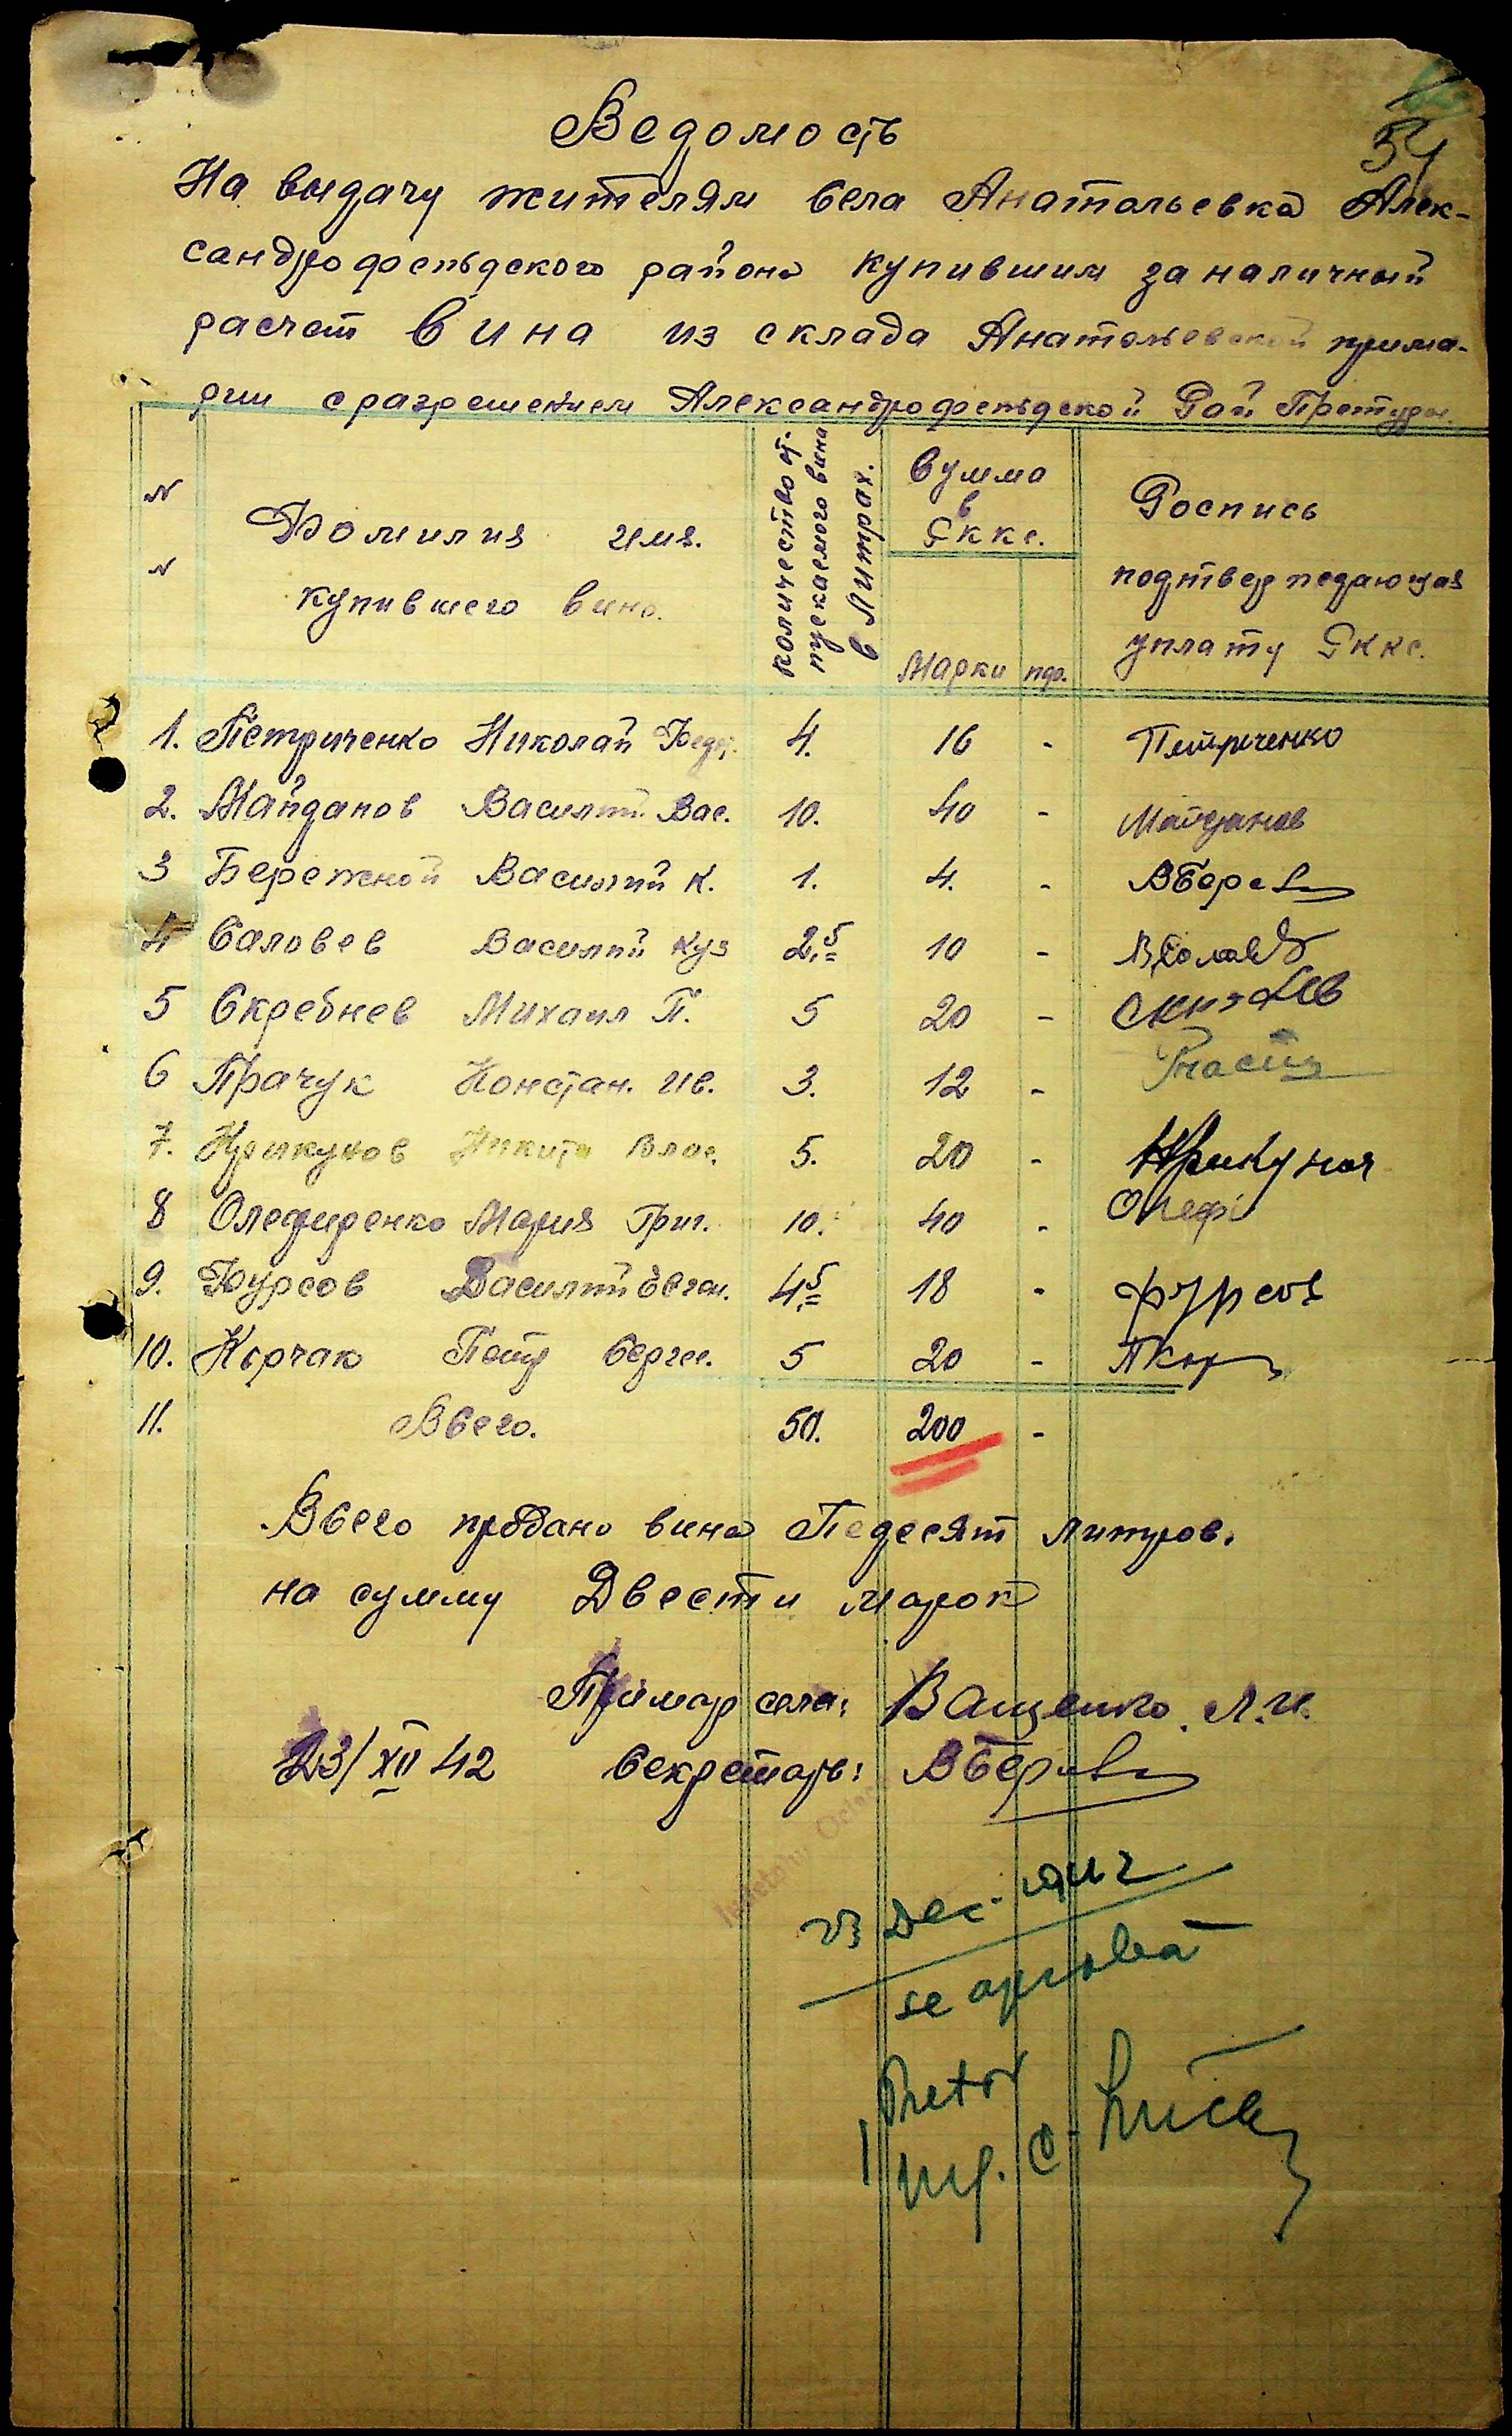 54
Ведомость
На выдачу жителям села Анатольевка Алек-
сандрофельдского района купившим за наличный
расчет Вина из склада Анатольевской прима-
рии с разрешением Александрофельдской Рай Претуры.
N N
Фамилия имя. купившего вино.
количество от-
пускаемого вина
в Литрах.
Сумма
в
Рккс.
Марки пф.
Роспись
подтверждающая
уплату Рккс.
1. Петриченко Николай Федо. 4. 16 - Петриченко
2. Майданов Василий Вас. 10. 40 - Майданов
3 Бережной Василий К. 1. 4. -
4 Саловев Василий Куз 2,5= 10 -
5 Скребнев Михаил П. 5 20 -
6 Прачук Констан. Ив. 3. 12 -
7. Крикунов Никита Влас. 5. 20 -
8 Олефиренко Мария Григ. 10. 40 - Олефі
9. Фурсов Василий Евген. 4,5= 18 - Фурсов
10. Корчак Петр Сергее. 5 20 - ПКор
11. Всего. 50. 200 -
Всего продано вина Педесят литров.
на сумму Двести марок
Примар села: Ващенко. Л.И.
23/XII 42 Секретарь:
23 Dec. 1942
se aprobă
Pretor